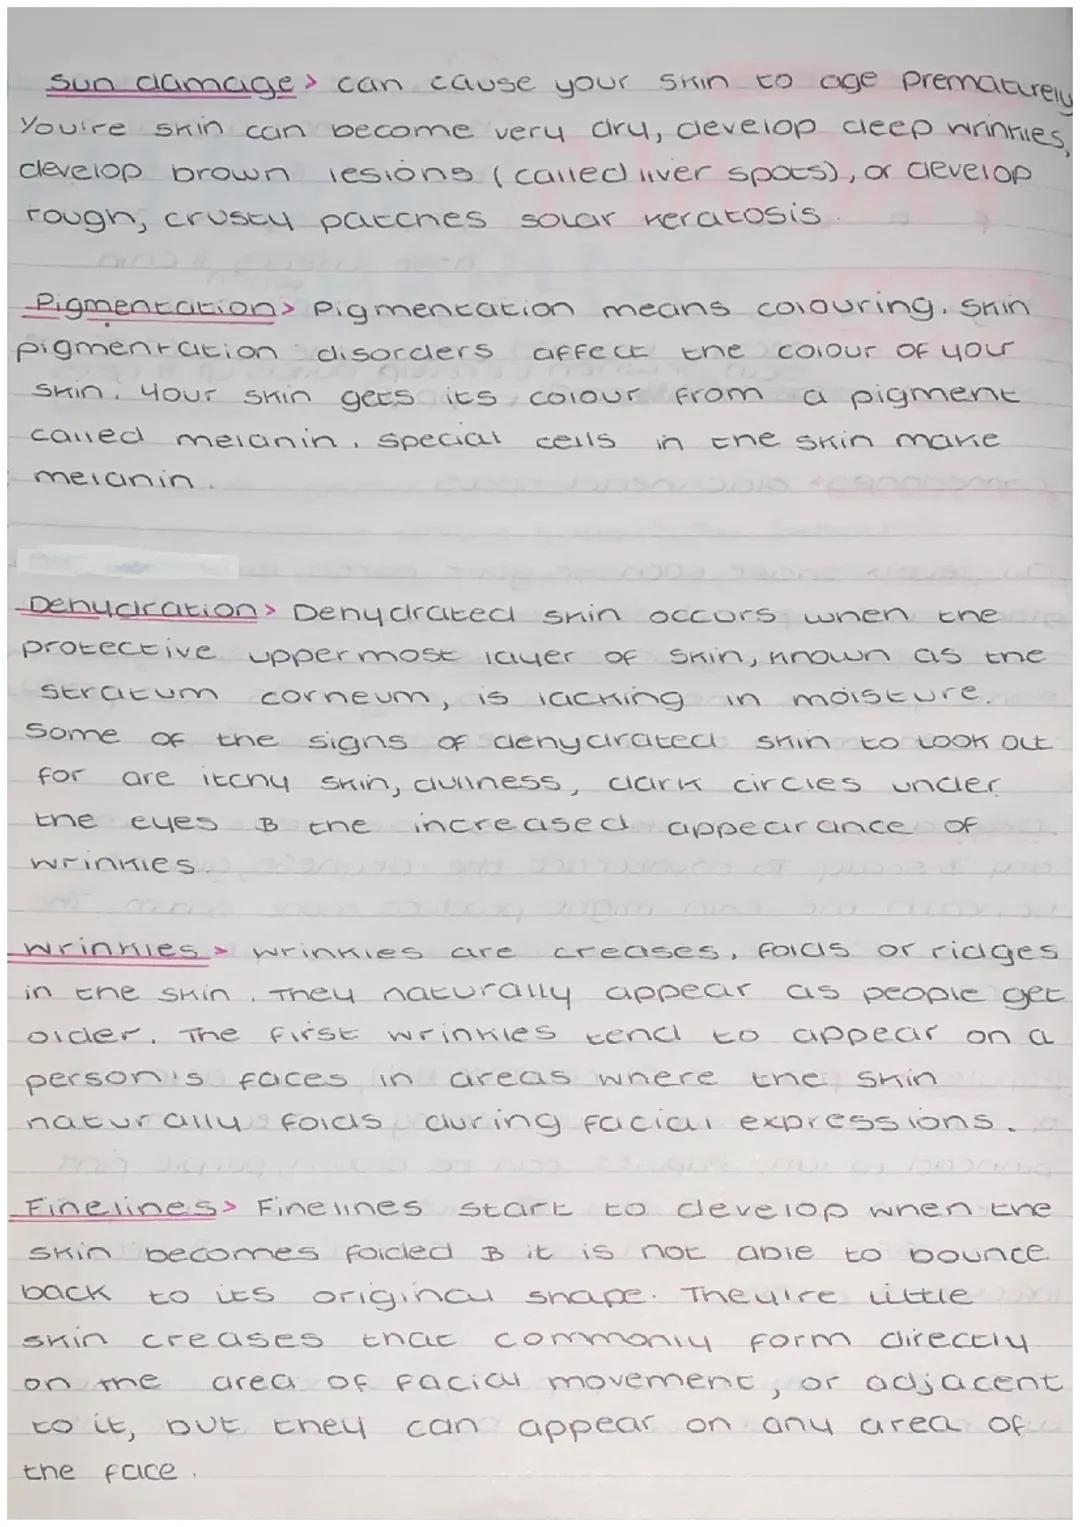 Sun damage> can cause your skin to age prematurely
You're skin can become very dry, develop deep wrinkles,
develop brown lesions (called liver spots), or develop
rough, crusty patches solar keratosis.
Pigmentation> Pigmentation means colouring. Skin
pigmentation disorders affect the colour of your
skin. Your skin gets its colour from a pigment
called melanin. Special cells in the skin make
melanin.
Dehydration> Dehydrated skin occurs when the
protective uppermost layer of skin, known as the
stratum corneum, is lacking in moisture.
Some of the signs of dehydrated skin to look out
for are itchy skin, dullness, dark circles under
the eyes & the increased appearance of
wrinkles.
Wrinkles> wrinkles are creases, folds or ridges
in the skin. They naturally appear as people get
older. The first wrinkles tend to appear on a
person's faces in areas where the skin
naturally folds during facial expressions.
Finelines> Finelines start to develop when the
skin becomes folded & it is not able to bounce
back to its original shape. They're little
skin creases that commonly form directly
on the area of facial movement, or adjacent
to it, but they can appear on any area of
the face.